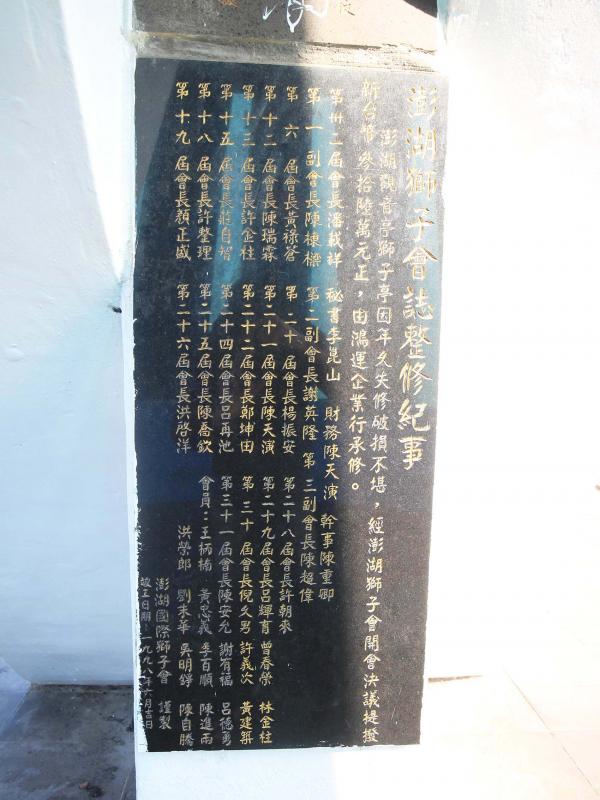 澎湖獅子會誌整修紀事
澎湖觀音亭獅子亭因年久失修破損不堪，經澎湖獅子會開會決議提撥
新台幣參拾陸萬元正，由鴻運企業行承修。
第卅二屆會長潘載祥 秘書李崑山 財務陳天演 幹事陳重卿
第一副會長陳棟樑 第二副會長謝英隆 第三副會長陳超偉
第六屆會長黃祿倉 第二十屆會長楊振安 第二十八屆會長許朝來
第十二屆會長陳瑞霖 第二十一屆會長陳天演 第二十九屆會長呂輝育 曾春榮 林金柱
第十三屆會長許金柱 第二十二屆會長鄭坤由 第三十屆會長倪久男 許義次 黃建築
第十五屆會長莊自智 第二十四屆會長呂再池 第三十一屆會長陳安允 謝有福 呂德勇
第十八屆會長許整理 第二十五屆會長陳喬欽 會員：王柄楠 黃忠義 李百順 陳進雨
第十九屆會長顏正盛 第二十六屆會長洪啓洋 洪榮郎 劉未華 吳明錚 陳自騰
澎湖國際獅子會 謹製
竣工日期：一九九八年六月吉日